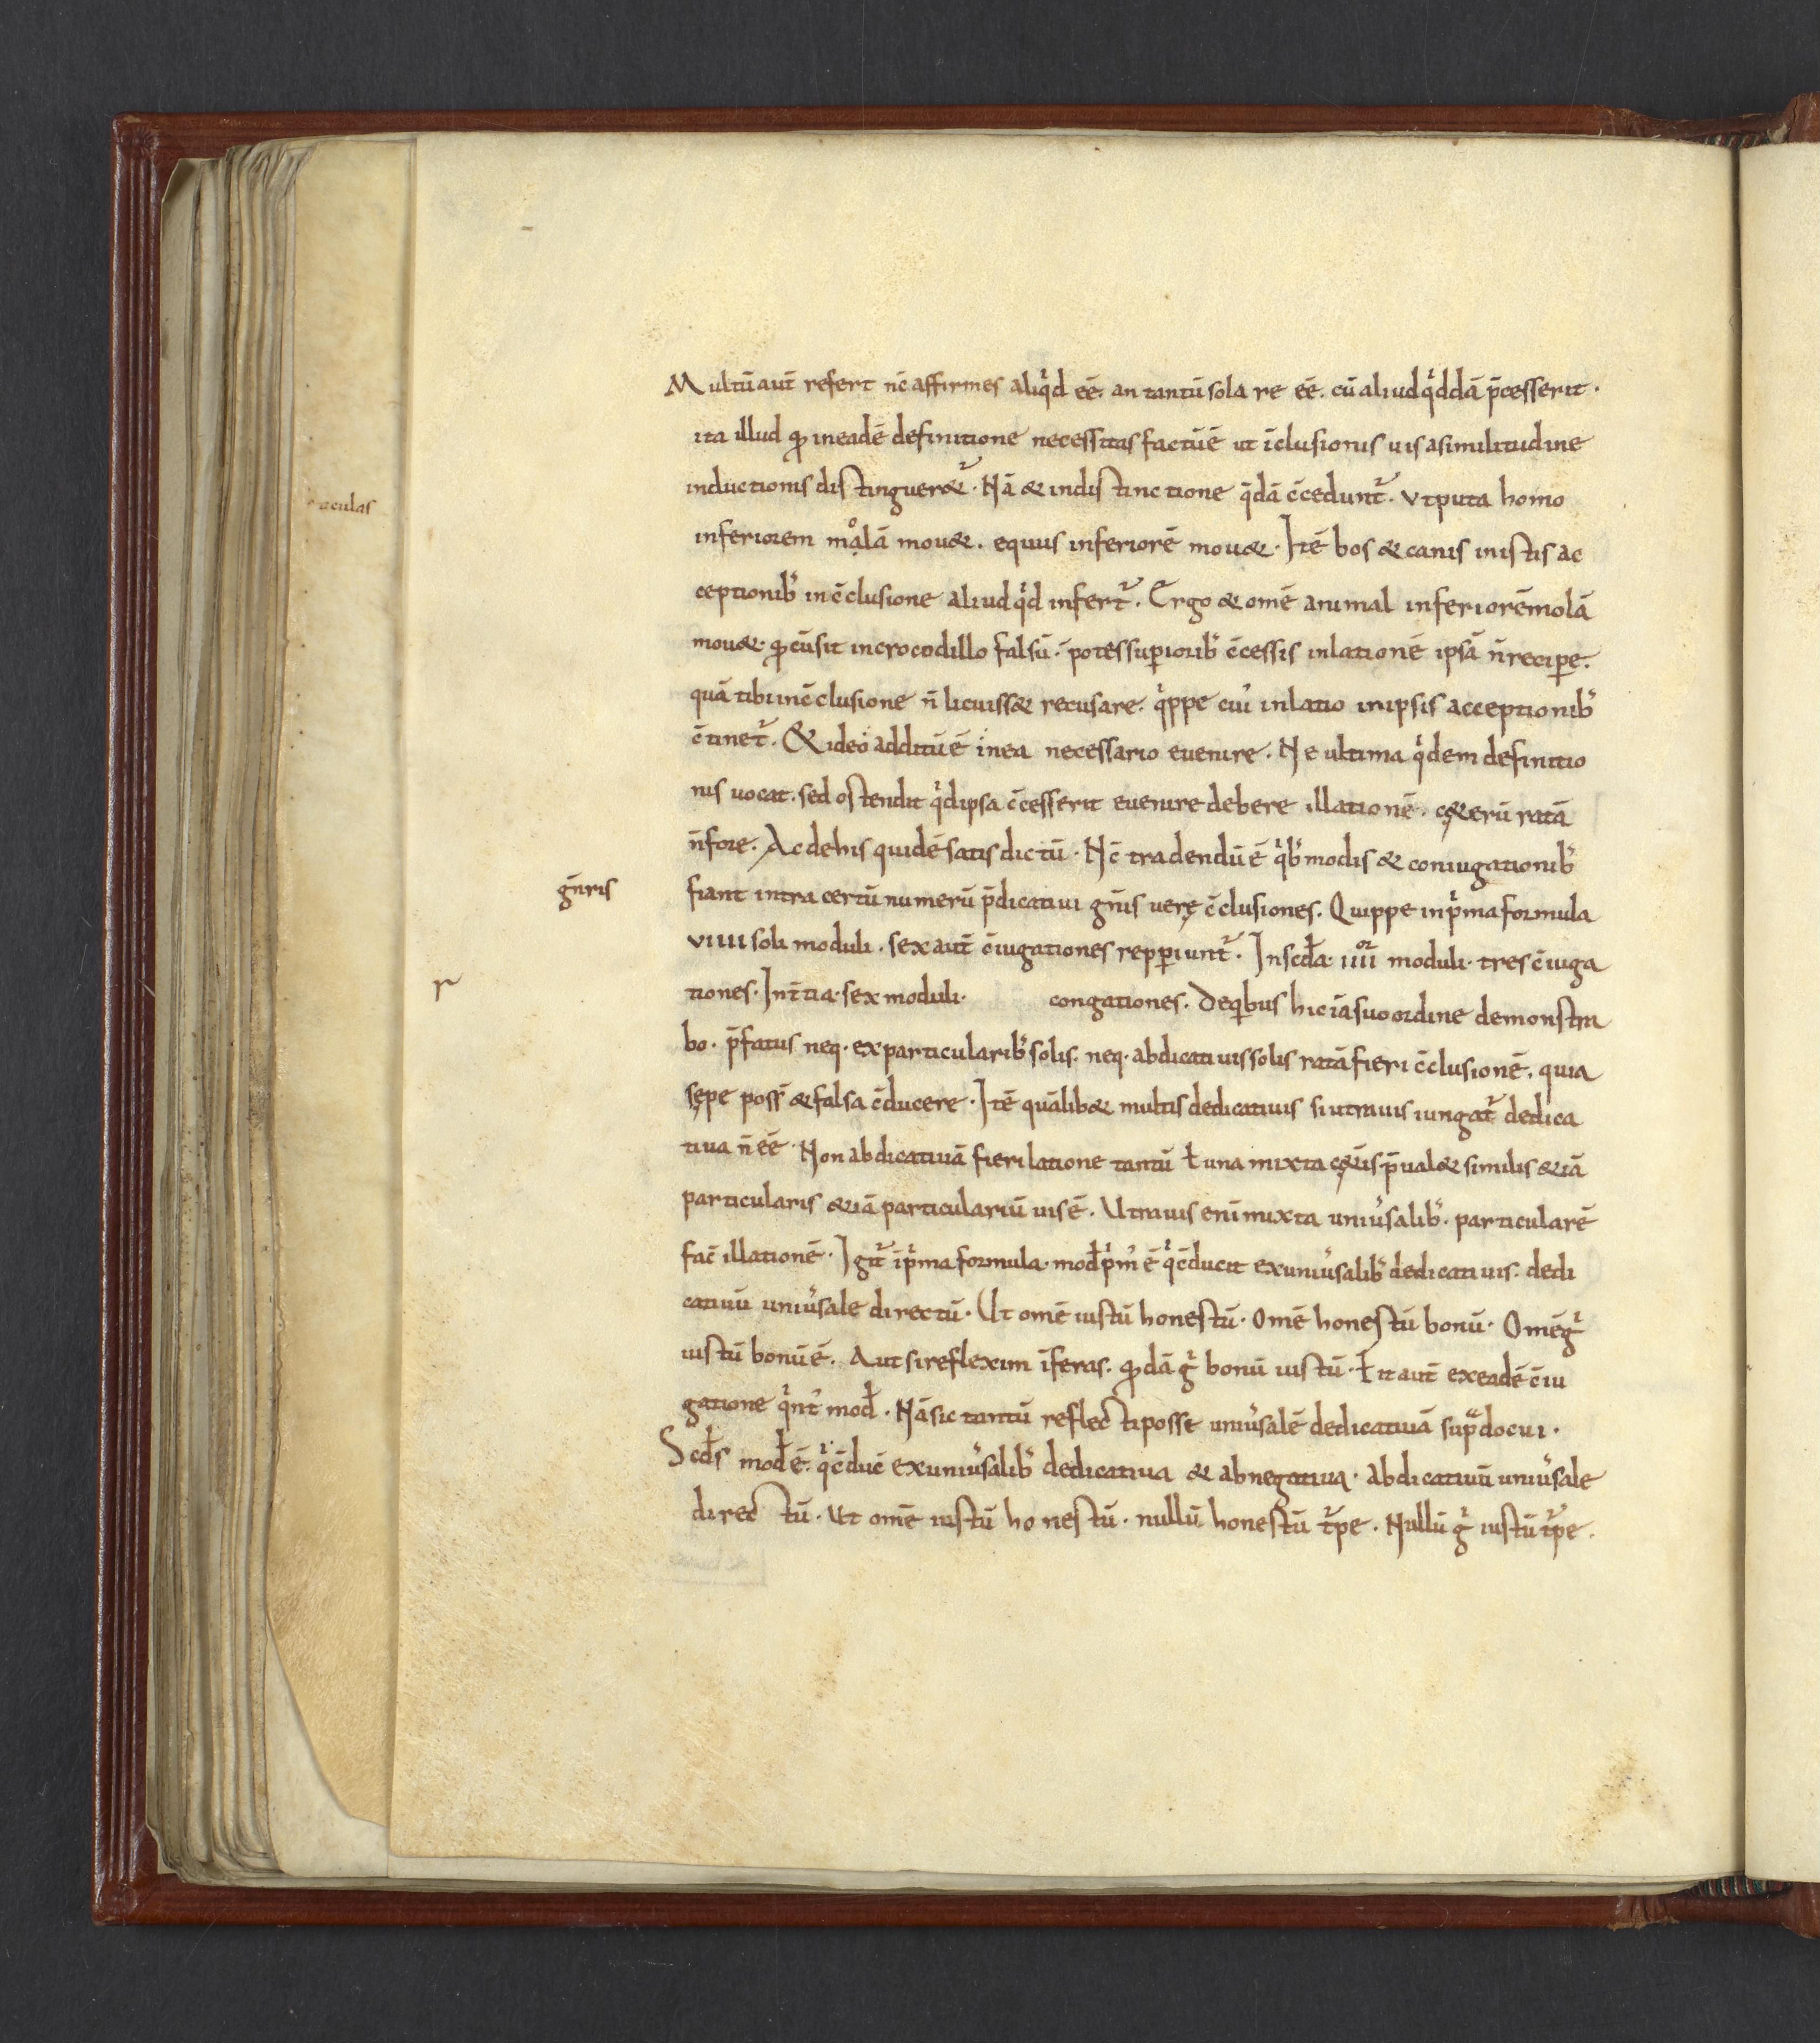 aculas
Multū aut̄ refert nc̄ affirmes aliqͥd eē. an tantū sola re eē. cū aliud qͥddā p̄cesserit.
ita illud ꝙ in eadē definitione necessitas factū ē ut īclusionis uis a similitudine
inductionis distinguer&᷑. Nā & in distinctione q̄dā c̄cedunt᷑. Vt puta homo
inferiorem mͦalā mou&. equus inferiorē mou&. Itē bos & canis in istis ac
ceptionibꝰ in c̄clusione aliud qͥd infert᷑. Ergo & omē animal inferiorē molā
mou&. ꝙ cū sit in crocodillo falsū. potēs suꝑioribꝰ c̄cessis inlationē ipsā n̄ reciꝑe.
quā tibi in c̄clusione n̄ licuiss& recusare. qͥppe cuiꝰ inlatio in ipsis acceptionibꝰ
c̄tinet᷑. & ideo additū ē in ea necessario euenire. Ne ultima qͥdem definitio
nis uocat. sed ostendit qͥd ipsa c̄cesserit euenire debere illationē. c&̨erū ratā
n̄ fore. Ac de his quidē satis dictū. Nc̄ tradendū ē qͥbꝰ modis & coniugationibꝰ
gn̄ris
fiant intra certū numerū p̄dicatiui gn̄is uerę c̄clusiones. Quippe in pͥma formula
VIIII soli moduli. sex aut̄ c̄iugationes repꝑiunt᷑. In scd̄a. IIIIor moduli. tres c̄iuga
r
tiones. In t̄tia. sex moduli. congationes. De qͥbus hic iā suo ordine demonstra
bo. p̄fatus neq. ex particularibꝰ solis. neq. abdicatiuis solis ratā fieri c̄clusionē. quia
sępe poss̄ & falsa c̄ducere. Itē quālib& multis dedicatiuis si utrauis iungat᷑ dedica
tiua n̄ eē. Non abdicatiuā fieri latione tantū ł una mixta c&̨is p̄ual& similis &iā
particularis &iā particulariū uis ē. Utrauis enī mixta uniuͬsalibꝰ. particularē
fac̄ illationē. Igit᷑ ī pͥma formula. mod̄ pͥmꝰ ē qͥ c̄ducit ex uniuͬsalibꝰ dedicatiuis. dedi
catiuū uniuͬsale directū. Ut omē iustū honestū. Omē honestū bonū. Omē gͦ
iustū bonū ē. Aut si reflexim īferas. ꝙdā gͦ bonū iustū. ł it aut̄ ex eadē c̄iu
gatione qͥntꝰ mod̄. Nā sic tantū reflecti posse uniuͬsalē dedicatiuā supͣ docui.
Scd̄s mod̄ ē. qͥ c̄duc̄ ex uniuͬsalibꝰ dedicatiua & abnegatiua. abdicatiuū uniuͬsale
directū. Ut omē iustū honestū. nullū honestū t᷑pe. Nullū gͦ iustū t᷑pe.